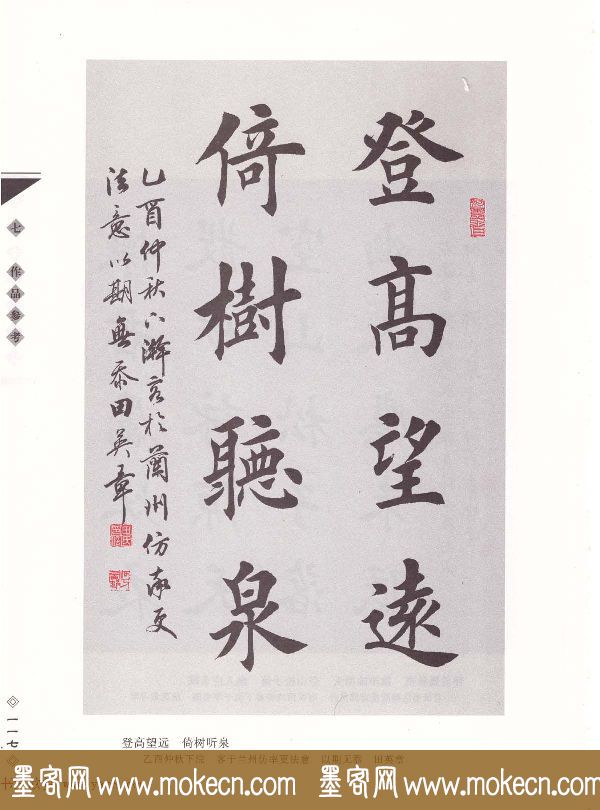 墨客网 www.mokecn.com
登高望遠
倚樹聽泉
乙酉仲秋下澣客於蘭州仿率更
法意以期無忝田英章
七
作品参考
一一七
登高望远 倚树听泉
乙酉仲秋下浣 客于兰州仿率更法意 以期无忝 田英章
墨客网 www.mokecn.com